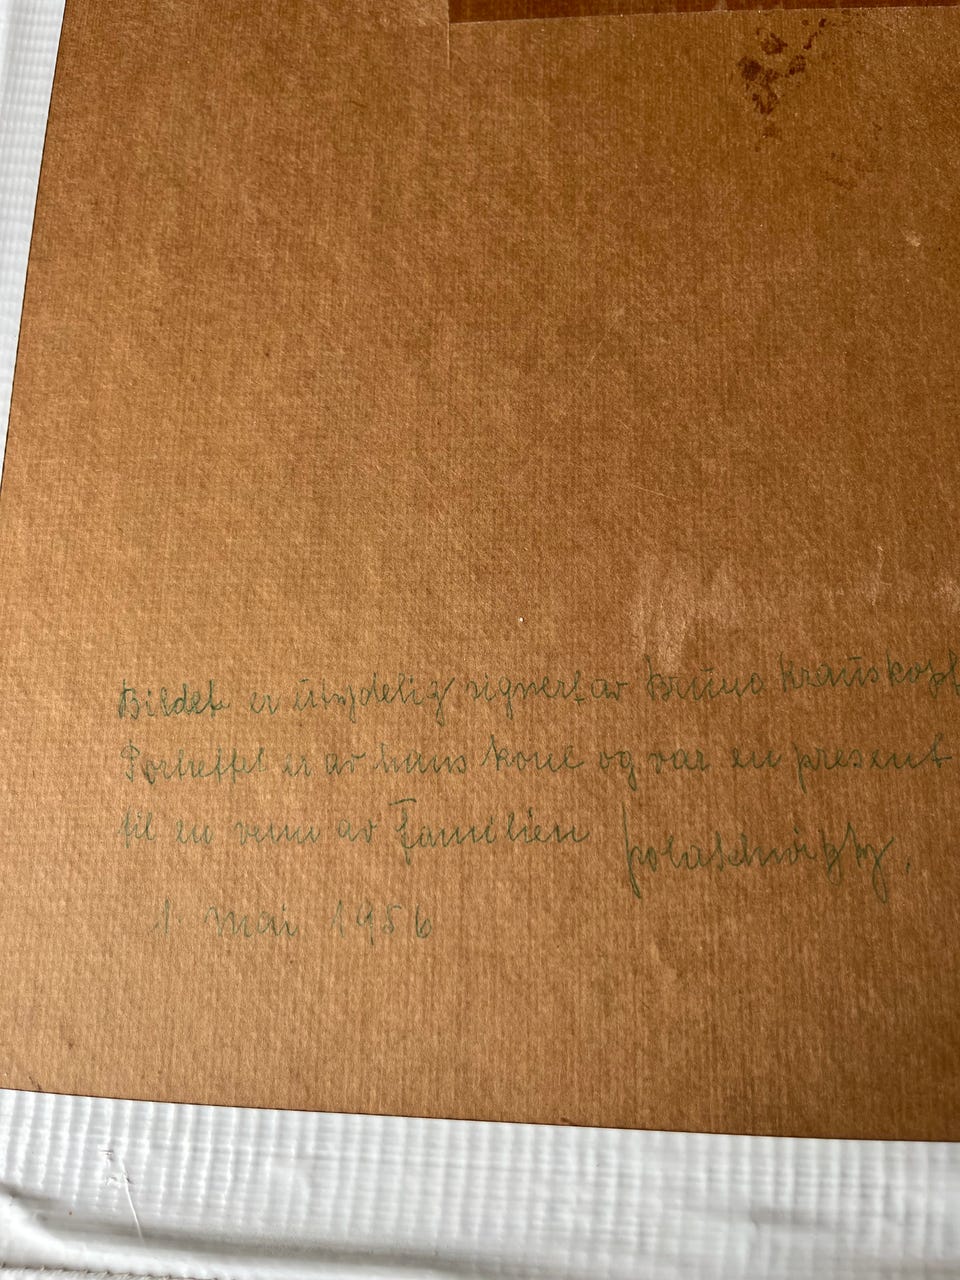 Bildet er utydelig signert av Bruno Krauskopf
Portrettet er av hans kone og var en present
til en venn av Familien
1. mai 1986